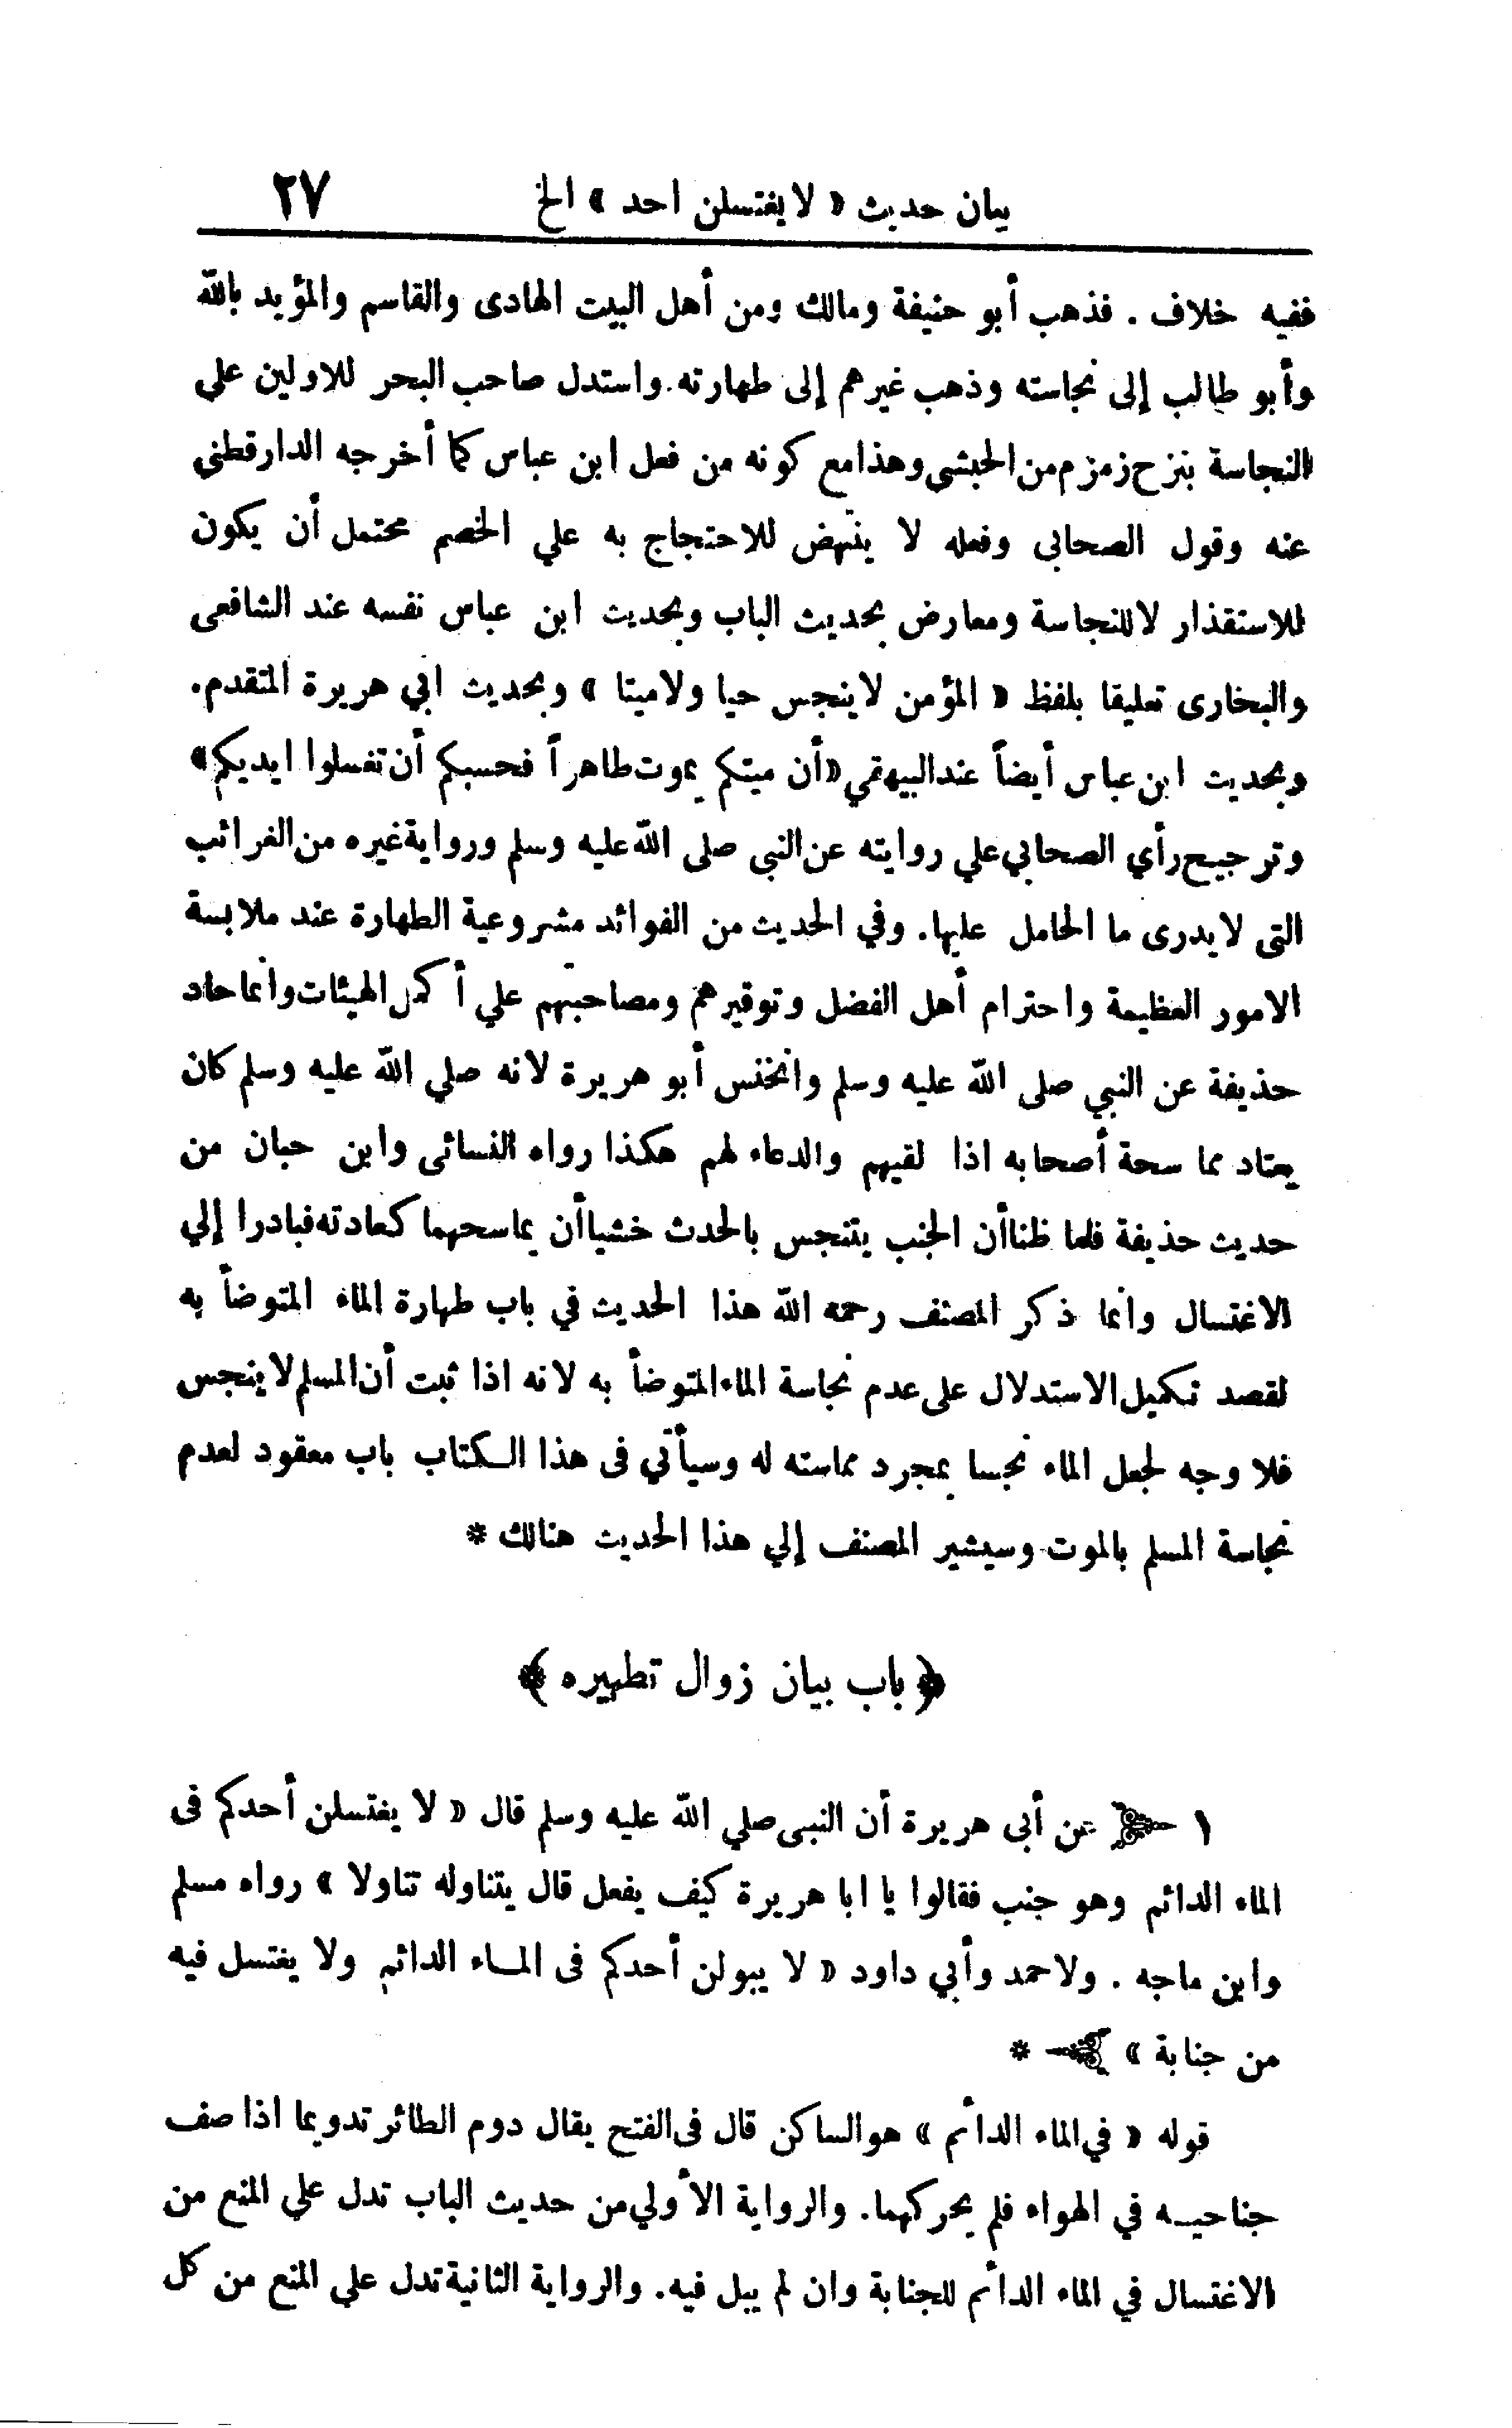 بيان حديث « لا يغتسلن احد » الخ ٢٧
ففيه خلاف . فذهب أبو حنيفة ومالك ومن أهل البيت الهادى والقاسم والمؤيد بالله
وأبو طالب إلى نجاسته وذهب غيرهم إلى طهارته. واستدل صاحب البحر للاولين علي
النجاسة بنزح زمزم من الحبشى وهذا مع كونه من فعل ابن عباس كما أخرجه الدارقطني
عنه وقول الصحابى وفعله لا ينتهض للاحتجاج به علي الخصم محتمل أن يكون
للاستقذار لا للنجاسة ومعارض بحديث الباب وبحديث ابن عباس نفسه عند الشافعى
والبخارى تعليقا بلفظ « المؤمن لا ينجس حيا ولا ميتا » وبحديث ابي هريرة المتقدم.
وبحديث ابن عباس أيضاً عند البيهقي «أن ميتكم يموت طاهراً فحسبكم أن تغسلوا ايديكم»
وترجيح رأي الصحابي علي روايته عن النبى صلى الله عليه وسلم ورواية غيره من الغرائب
التى لا يدرى ما الحامل عليها. وفي الحديث من الفوائد مشروعية الطهارة عند ملابسة
الامور العظيمة واحترام أهل الفضل وتوقيرهم ومصاحبتهم علي أكمل الهيئات وانما حاد
حذيفة عن النبي صلى الله عليه وسلم وانخنس أبو هريرة لانه صلي الله عليه وسلم كان
يعتاد مماسحة أصحابه اذا لقيهم والدعاء لهم هكذا رواه النسائى وابن حبان من
حديث حذيفة فلما ظنا أن الجنب يتنجس بالحدث خشيا أن يماسحهما كعادته فبادرا إلي
الاغتسال وانما ذكر المصنف رحمه الله هذا الحديث في باب طهارة الماء المتوضأ به
لقصد تكميل الاستدلال على عدم نجاسة الماء المتوضأ به لانه اذا ثبت أن المسلم لا ينجس
فلا وجه لجعل الماء نجسا بمجرد مماسته له وسيأتي فى هذا الكتاب باب معقود لعدم
نجاسة المسلم بالموت وسيشير المصنف إلي هذا الحديث هنالك *
﴿ باب بيان زوال تطهيره ﴾
١ عن أبى هريرة أن النبى صلي الله عليه وسلم قال « لا يغتسلن أحدكم فى
الماء الدائم وهو جنب فقالوا يا ابا هريرة كيف يفعل قال يتناوله تناولا » رواه مسلم
وابن ماجه . ولاحمد وأبي داود « لا يبولن أحدكم فى المـاء الدائم ولا يغتسل فيه
من جنابة » *
قوله « في الماء الدائم » هو الساكن قال فى الفتح يقال دوم الطائر تدويما اذا صف
جناحيـه في الهواء فلم يحركهما. والرواية الأولي من حديث الباب تدل علي المنع من
الاغتسال في الماء الدائم للجنابة وان لم يبل فيه. والرواية الثانية تدل علي المنع من كل